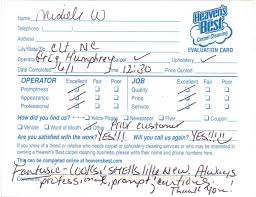 Name Michele W
Heaven's Best
Carpet Cleaning
EVALUATION CARD
Telephone
Address
City/State/Zip Clt, NC
Operator Greg Humphrey Carpet ✓ Upholstery ✓
Date Completed 6/1 Time 12:30 Price Quoted
OPERATOR Excellent Fair Poor JOB Excellent Fair Poor
Promptness Quality
Appearance Price
Professional Service
How did you find us? Yellow Pages Newspaper Flyer Coupon
Vehicle Word of Mouth Other Prior customer
Are you satisfied with the work? YES!!! Will you call us again? YES!!!!
If you know of a friend or relative who needs carpet or upholstery cleaning, or who is interested in owning
a Heaven's Best carpet cleaning business, please write their name and phone number here:
This can be completed online at heavensbest.com
Fantastic - Looks & smells like new. Always
professional, prompt, courteous!
Thank you!